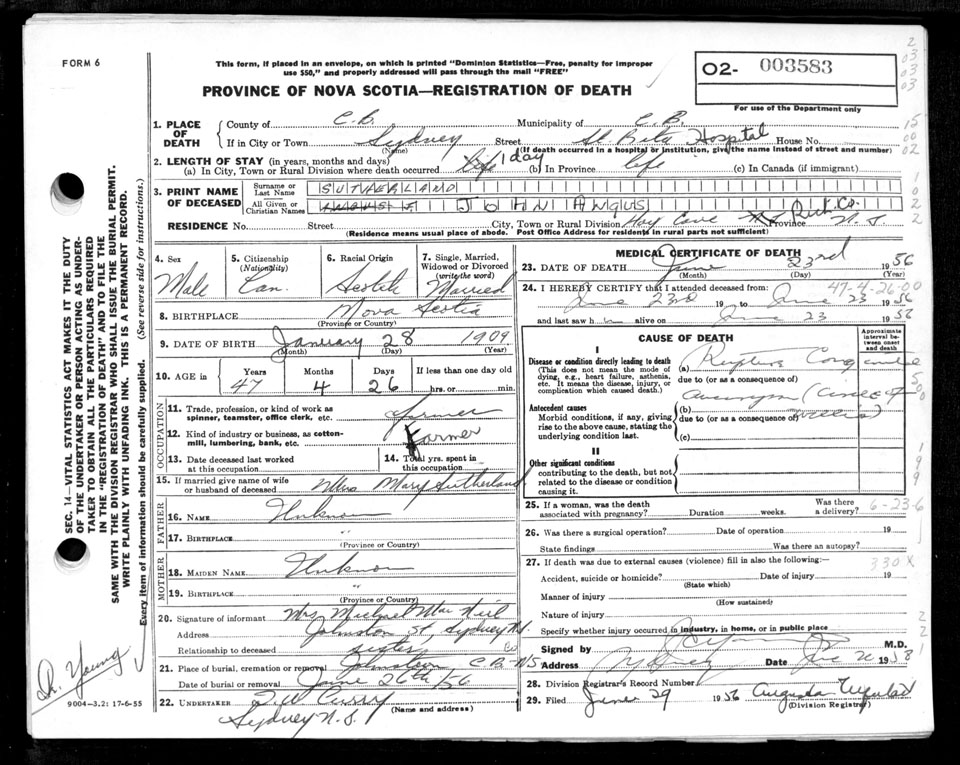 FORM 6
This form, if placed in an envelope, on which is printed "Dominion Statistics—Free, penalty for improper
use $50," and properly addressed will pass through the mail "FREE"
02- 003583
For use of the Department only
PROVINCE OF NOVA SCOTIA—REGISTRATION OF DEATH
1. PLACE OF DEATH
County of C.B. Municipality of C.B.
If in City or Town Sydney Street St Hospital House No.
(Name) (If death occurred in a hospital or institution, give the name instead of street and number)
2. LENGTH OF STAY (in years, months and days)
(a) In City, Town or Rural Division where death occurred life 1 day (b) In Province life (c) In Canada (if immigrant)
3. PRINT NAME OF DECEASED
Surname or Last Name SUTHERLAND
All Given or Christian Names JOHN ANGUS
RESIDENCE No. Street City, Town or Rural Division Province N.S.
(Residence means usual place of abode. Post Office Address for residents in rural parts not sufficient)
4. Sex Male
5. Citizenship (Nationality) Can.
6. Racial Origin Scotch
7. Single, Married, Widowed or Divorced (write the word) Married
8. BIRTHPLACE Nova Scotia
(Province or Country)
9. DATE OF BIRTH January 28 1909
(Month) (Day) (Year)
10. AGE in Years 47 Months 4 Days 26 If less than one day hrs. or min.
OCCUPATION
11. Trade, profession, or kind of work as spinner, teamster, office clerk, etc. Farmer
12. Kind of industry or business, as cotton-mill, lumbering, bank, etc. Farmer
13. Date deceased last worked at this occupation
14. Total yrs. spent in this occupation
15. If married give name of wife or husband of deceased Mrs Mary Sutherland
FATHER
16. NAME Unknown
17. BIRTHPLACE "
(Province or Country)
MOTHER
18. MAIDEN NAME Unknown
19. BIRTHPLACE "
(Province or Country)
20. Signature of informant Mrs Michael MacNeil
Address Johnston St, Sydney N.S.
Relationship to deceased sister
21. Place of burial, cremation or removal Johnstown C.B. N.S
Date of burial or removal June 26th/56
22. UNDERTAKER Curry
Sydney N.S.
(Name and address)
MEDICAL CERTIFICATE OF DEATH
23. DATE OF DEATH June 23rd 1956
(Month) (Day) (Year)
47-4-26-00
24. I HEREBY CERTIFY that I attended deceased from:
June 23rd 19 to June 23 1956
and last saw h im alive on June 23 1956
CAUSE OF DEATH
Approximate interval between onset and death
I
Disease or condition directly leading to death
(This does not mean the mode of dying, e.g., heart failure, asthenia, etc. It means the disease, injury, or complication which caused death.)
(a) Cong
due to (or as a consequence of)
aneurysm (Circle of Willis)
Antecedent causes
Morbid conditions, if any, giving rise to the above cause, stating the underlying condition last.
(b)
due to (or as a consequence of)
(c)
II
Other significant conditions
contributing to the death, but not related to the disease or condition causing it.
25. If a woman, was the death associated with pregnancy? Duration weeks. Was there a delivery?
6-23-6
26. Was there a surgical operation? Date of operation 19
State findings Was there an autopsy?
27. If death was due to external causes (violence) fill in also the following: 330X
Accident, suicide or homicide? Date of injury 19
(State which)
Manner of injury
(How sustained)
Nature of injury
Specify whether injury occurred in industry, in home, or in public place
Signed by M.D.
Address Sydney Date 19
28. Division Registrar's Record Number
29. Filed June 29 1956 Augusta
(Division Registrar)
SEC. 14—VITAL STATISTICS ACT MAKES IT THE DUTY
OF THE UNDERTAKER OR PERSON ACTING AS UNDER-
TAKER TO OBTAIN ALL THE PARTICULARS REQUIRED
IN THE "REGISTRATION OF DEATH" AND TO FILE THE
SAME WITH THE DIVISION REGISTRAR WHO SHALL ISSUE THE BURIAL PERMIT.
WRITE PLAINLY WITH UNFADING INK. THIS IS A PERMANENT RECORD.
Every item of information should be carefully supplied. (See reverse side for instructions.)
Dr. Young
9004—3.2: 17-6-55